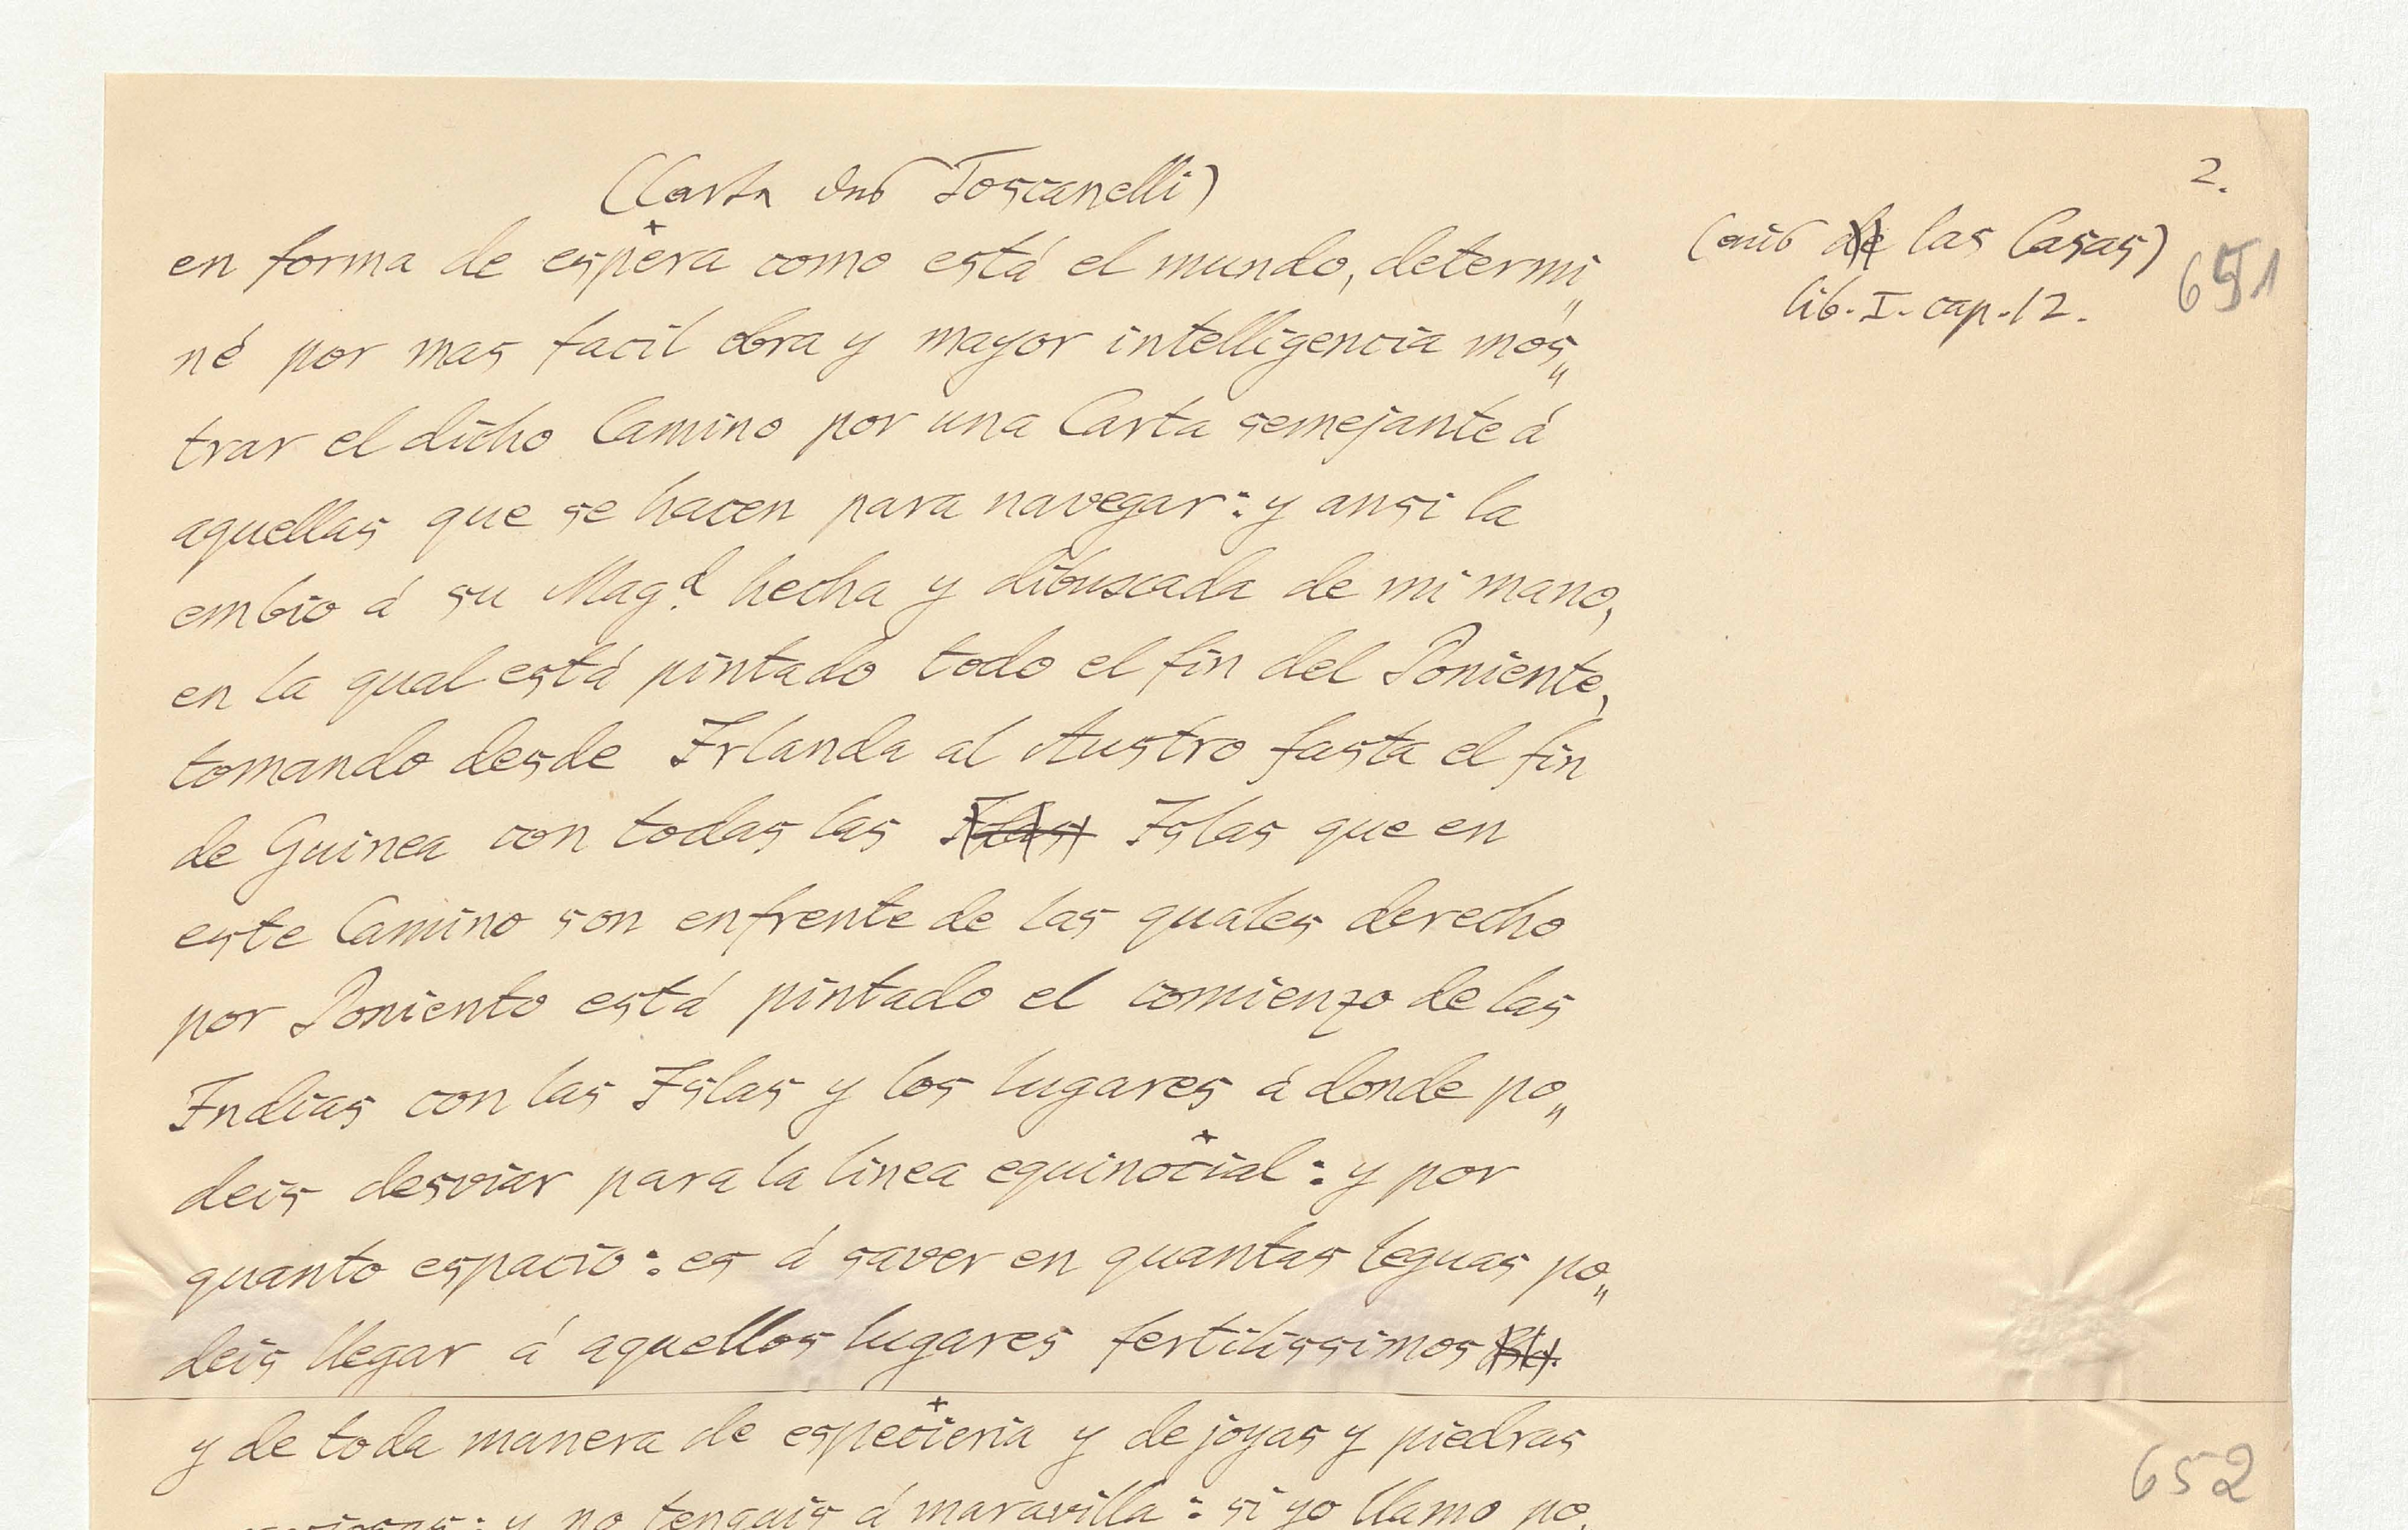 2.
(Carta des Toscanelli)
(aus de las Casas)
lib. I. cap. 12.
651
en forma de espera como está el mundo, determi„
né por mas facil obra y mayor intelligencia mos„
trar el dicho Camino por una Carta semejante á
aquellas que se hacen para navegar: y ansi la
embio á su Mag.d hecha y dibuxada de mi mano,
en la qual está pintado todo el fin del Poniente,
tomando desde Irlanda al Austro fasta el fin
de Guinea con todas las Islas que en
este Camino son enfrente de las quales derecho
por Poniento está pintado el comienzo de las
Indias con las Islas y los lugares á donde po„
deis desviar para la linea equinocial: y por
quanto espacio: es á saver en quantas leguas po„
deis llegar á aquellos lugares fertilissimos
y de toda manera de especieria y de joyas y piedras
652
y no tengais á maravilla: si yo llamo po